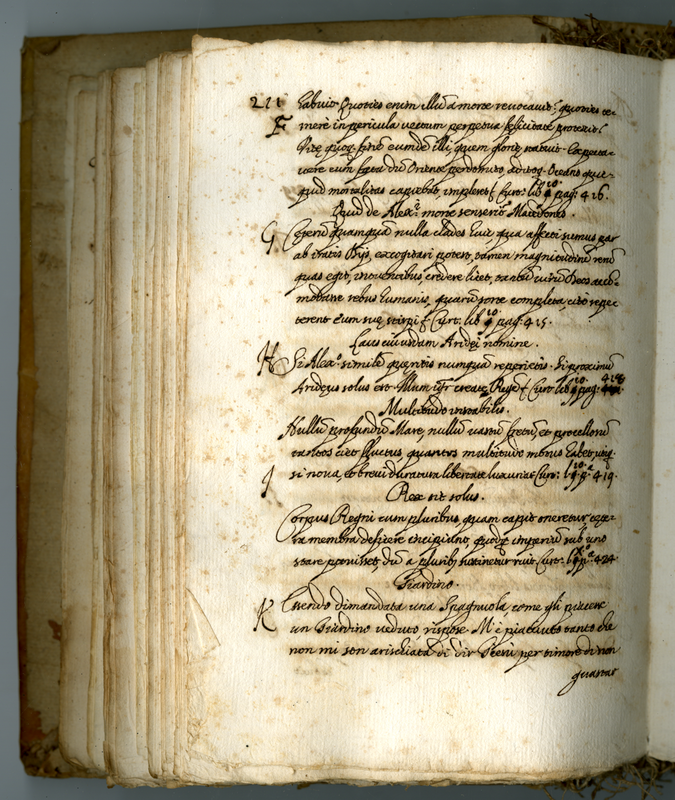 211 habuit. Quoties enim illũ a morte revocavit? quoties te-
F merè in pericula vectum perpetua felicitate protexit?
Vitę quoq; finẽ eundẽ illi, quem glorię statuit. Expecta-
vere eum fata dũ Oriente perdomito, aditoq; Oceano quic-
quid mortalitas capiebat, impleret. Curt: lib 10 pag: 416.
Quid de Alex.° mortē senserit Macedones.
G Ceterũ quamquã nulla clades huic, qua affecti sumus par
ab iratis Dijs, excogitari potest, tamen magnitudinẽ rerũ
quas egit, intuentibus credere licet, tantũ virũ Deos acco-
modasse rebus humanis, quarũ sorte completa, citò repe-
terent eum suę stirpi. Curt. lib 10 pag: 415.
Laus cuiusdam Aridęi nomine.
H Si Alex.° similẽ quęritis numquã reperietis. Si proximũ
Aridęus solus est. Curt lib 10. pag: 418
Multitudo instabilis.
Nullũ profundũ Mare, nullũ vastũ fretũ, et procellosũ
tantos ciet fluctus, quantos multitudo motus habet, utiq;
I si nova, et brevi duratura libertate luxuriat. Curt: l. 10. p.ª 419.
Rex sit solus.
Corpus Regni cum pluribus, quam capit oneretur cęte-
ra membra deficere incipiunt, quodq; imperiũ sub uno
stare potuisset, dũ a pluribq; sustinetur ruit. Curt: l. X.° p.ª 424.
Giardino.
K Essendo dimandata una Spagnuola come gli piacesse
un Giardino veduto, rispose M'è piacciuto tanto che
non mi son arisciata di dir Giesù per timore di non
guastar